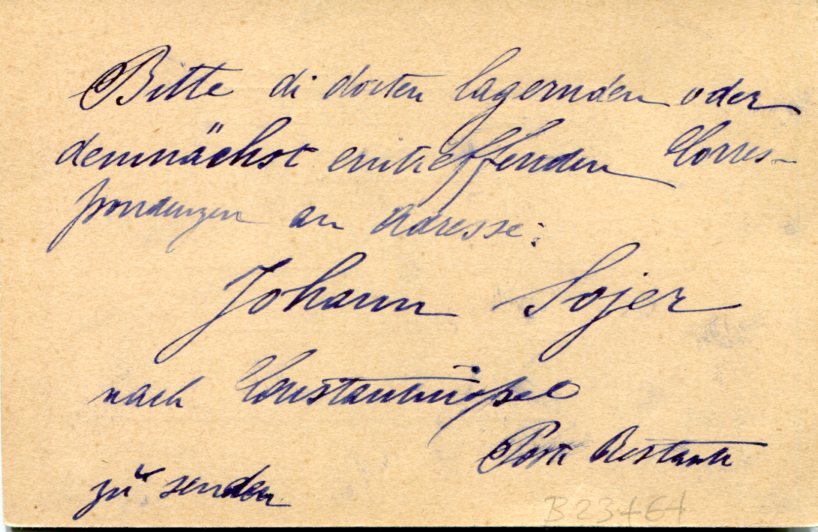 Bitte di dorten lagernden oder
demnächst eintreffenden Corres-
pondenzen an Adresse:
Johann Sojer
nach Constantinopel
Poste Restante
zu senden
B23464